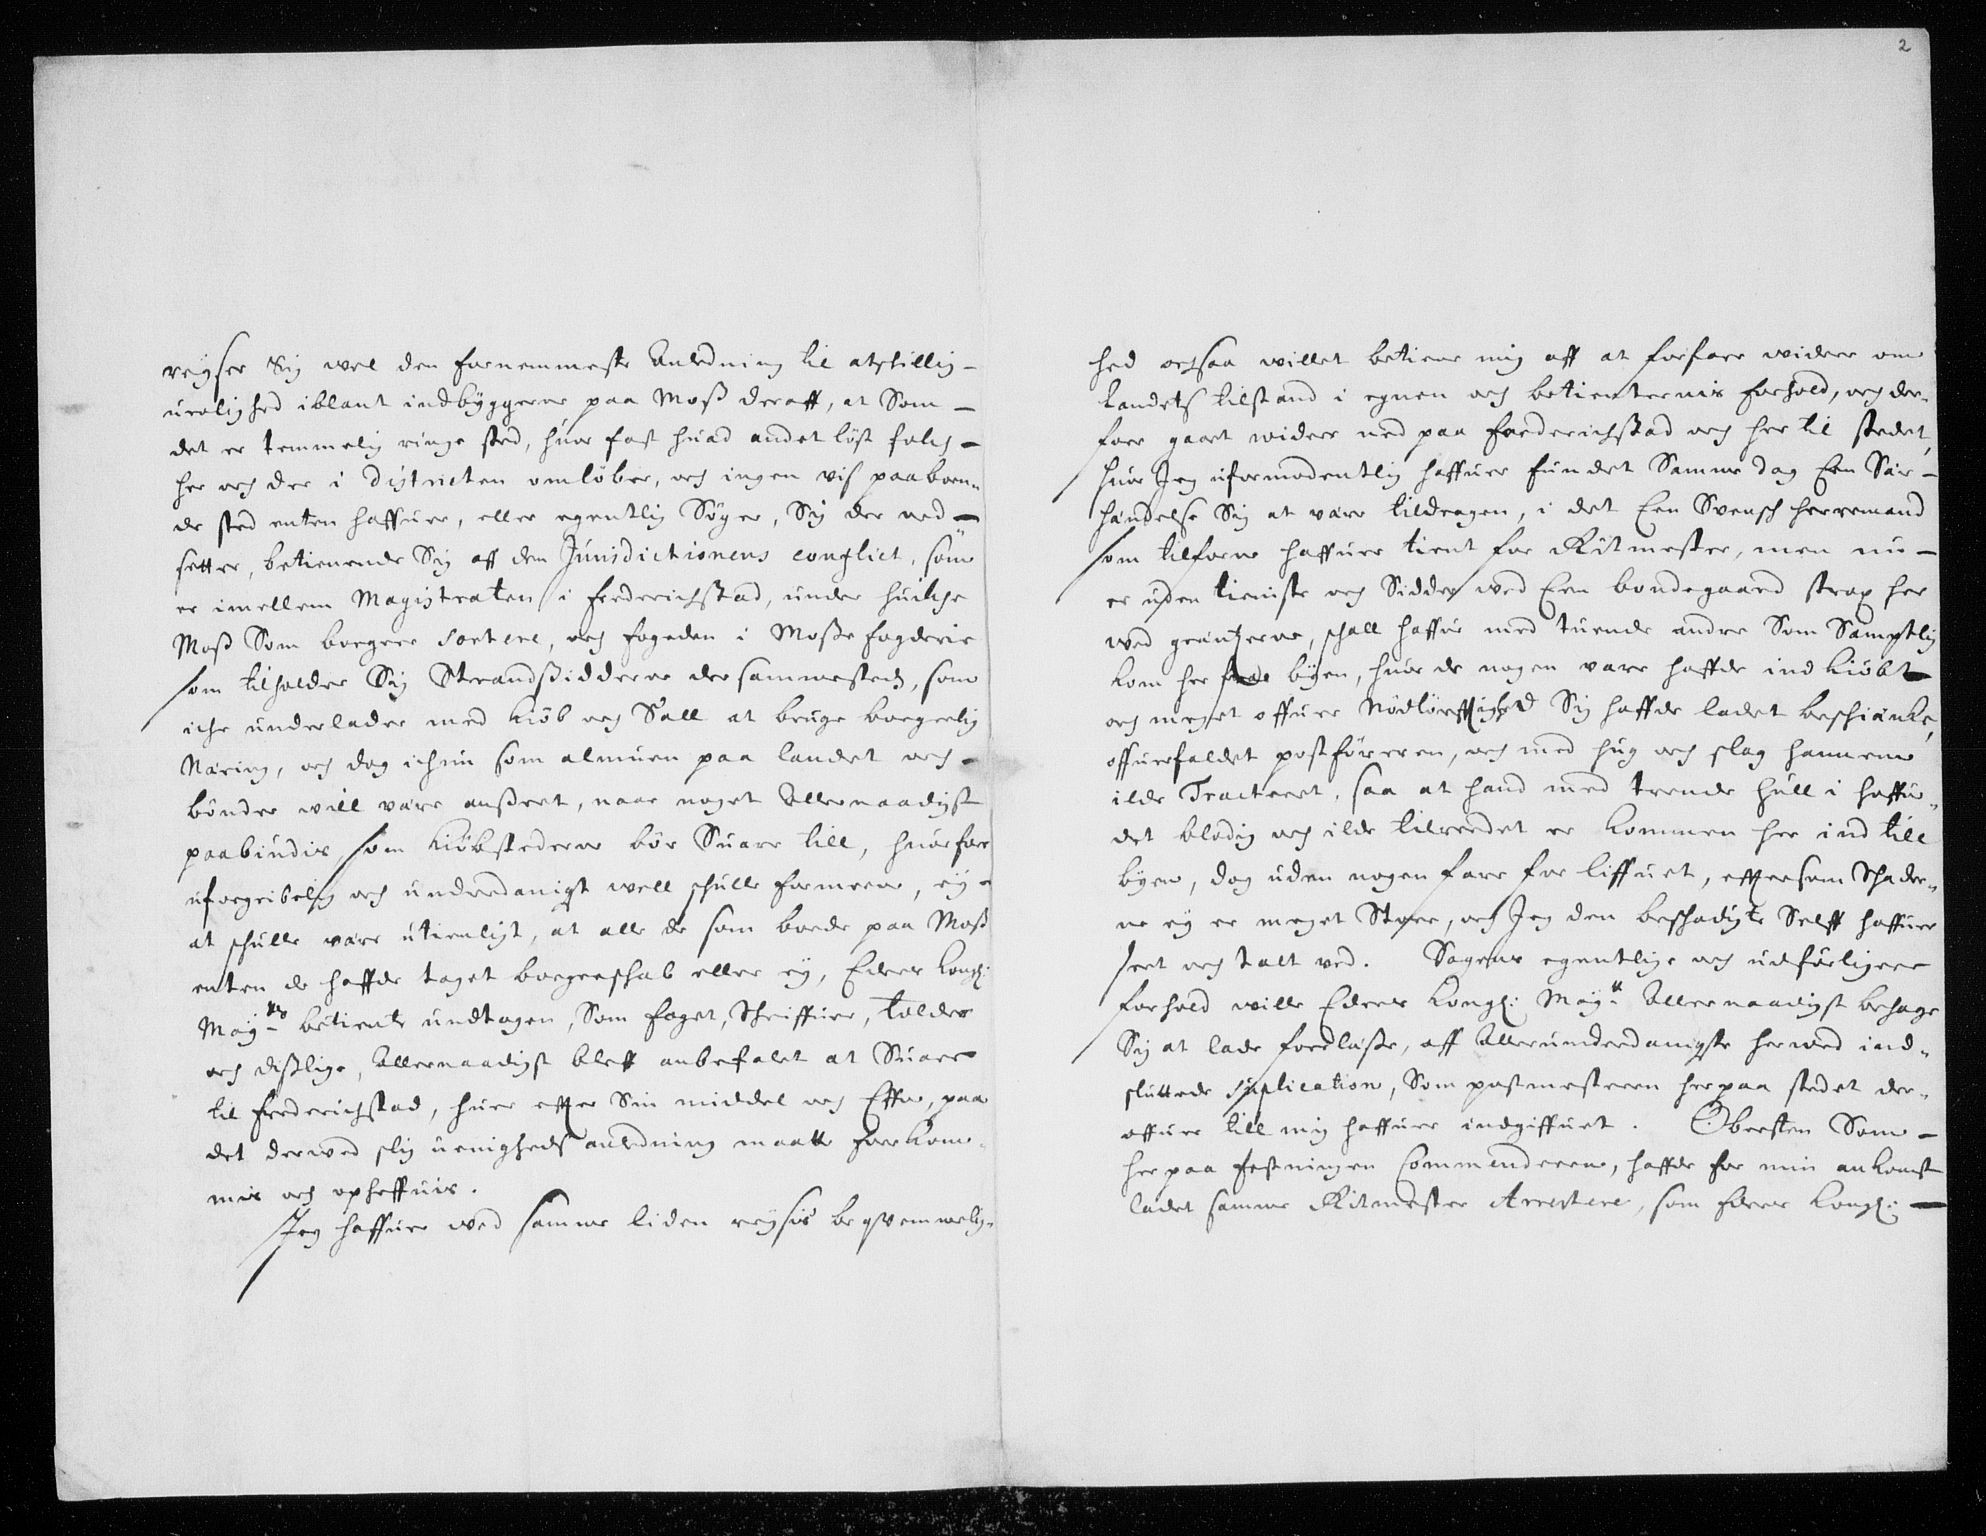 2
reÿser Sig wel den fornemmeste Anledning til atskillig-
urolighed iblant indbÿggerne paa Moss deraff, at Som-
det er temmelig ringe sted, huor fast huad andet löst folch-
her och der i Districten omlöber, och ingen vis paaboen-
de sted enten haffuer, eller egentlig Söger, Sig der ned-
setter, betienende Sig aff den Jurisdictionens conflict, som
er imellem Magistraten i Frederichstad, under huilche
Moss Som borger sortere, och fogeden i Mosse fogderie
som tilholder Sig Strandsidderne dersammesteds, som
iche underlader med kiöb och Sall at bruge borgerlig
Næring, och dog ichun som almuen paa landet och-
bönder will være ansseet, naar noget Allernaadigst
paabindis som kiöbstederne bör Suare till, huorfor
uforgribelig och underdanigst well schulle formeene, eÿ-
at schulle være utienligt, at alle de som boede paa Moss
enten de haffde taget borgerschab eller eÿ, Eders Kongl:
Maÿ.tts betiente undtagen, Som foget, Schriffuer, tolder
och disslige, Allernaadigst bleff anbefalet at Suare
til Frederichstad, huer effter Sin middel och Effne, paa
det derued slig uenigheds anledning maatte forekom-
mis och opheffuis.
Jeg haffuer wed samme liden reÿsis beqvemmelig-
hed ochsaa willet betiene mig aff at forfare widere om
Landets tilstand i egnen och betienternis forhold, och der-
foer gaaet widere ned paa Frederichstad och her til stedet,
huor Jeg uformodentlig haffuer fundet Samme dag Een Sær-
hændelse Sig at være tildragen, i det Een Svensch herremand
som tilforne haffuer tient for Ritmester, men nu-
er uden tieniste och Sidder wed Een bondegaard strax her
wed grændserne, schall haffue med tuende andre Som Samptlig
kom her fra byen, huor de nogen vare haffde ind kiöbt
och meget offuer Nödtörfftighed Sig haffde ladet beschiencke,
offuerfaldet postföreren, och med hug och slag hannem
ilde Tracteret, saa at hand med trende hull i hoffue-
det blodig och ilde tilreedet er kommen her ind till
bÿen, dog uden nogen fare for liffuet, efftersom Schader-
ne eÿ er meget Store, och Jeg den beschadigte Selff haffuer
seet och talt ved. Sagens egentlige och udförligere
forhold wille Eders Kongl: Maÿ.tt Allernaadigst behage
Sig at lade forelæsse, aff Allerunderdanigste herwed ind-
sluttede suplication, Som postmesteren her paa stedet der-
offuer till mig haffuer indgiffuet. Obersten Som-
her paa festningen Commenderer, haffde for min ankomst
ladet samme Ritmester Arrestere, som Eders Kongl:-